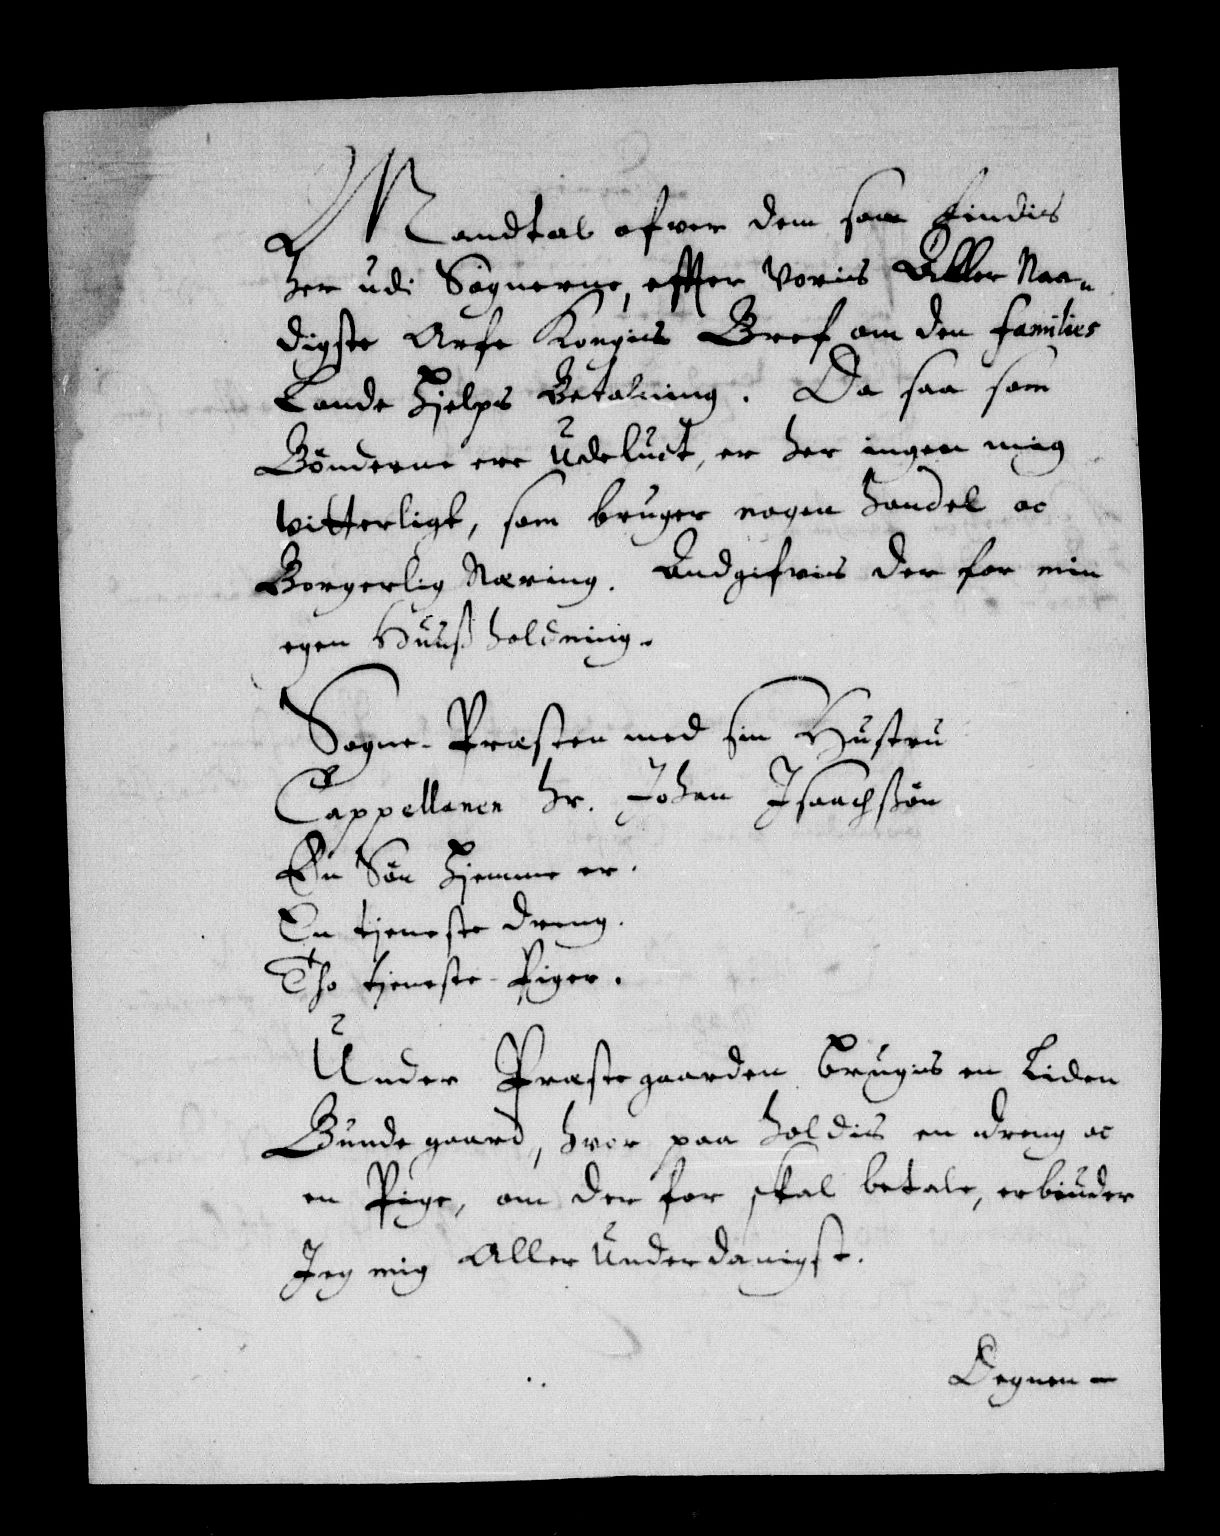 Mandtal ofver dem som findis
her udi Sognerne, effter Voris Aller Naa-
digste Arfe Kongis Bref om den families
Lande Hjelps Betalning. Da saa som
Bönderne ere Udeluct, er her ingen mig
vitterligt, som bruger nogen handel oc
Borgerlig Næring. Andgifvis der for min
egen Huusholdning.
Sogne-Præsten med sin Hustru
Cappellanen hr. Johan Isaachssön
En Sön Hjemme er.
En tjeneste dreng.
Tho tjeneste-Piger.
Under Præstegaarden brugis en Liden
Bundegaard, hvor paa holdis en dreng oc
en Pige, om der for skal betale, erbiuder
Jeg mig Allerunderdanigst.
Degnen -